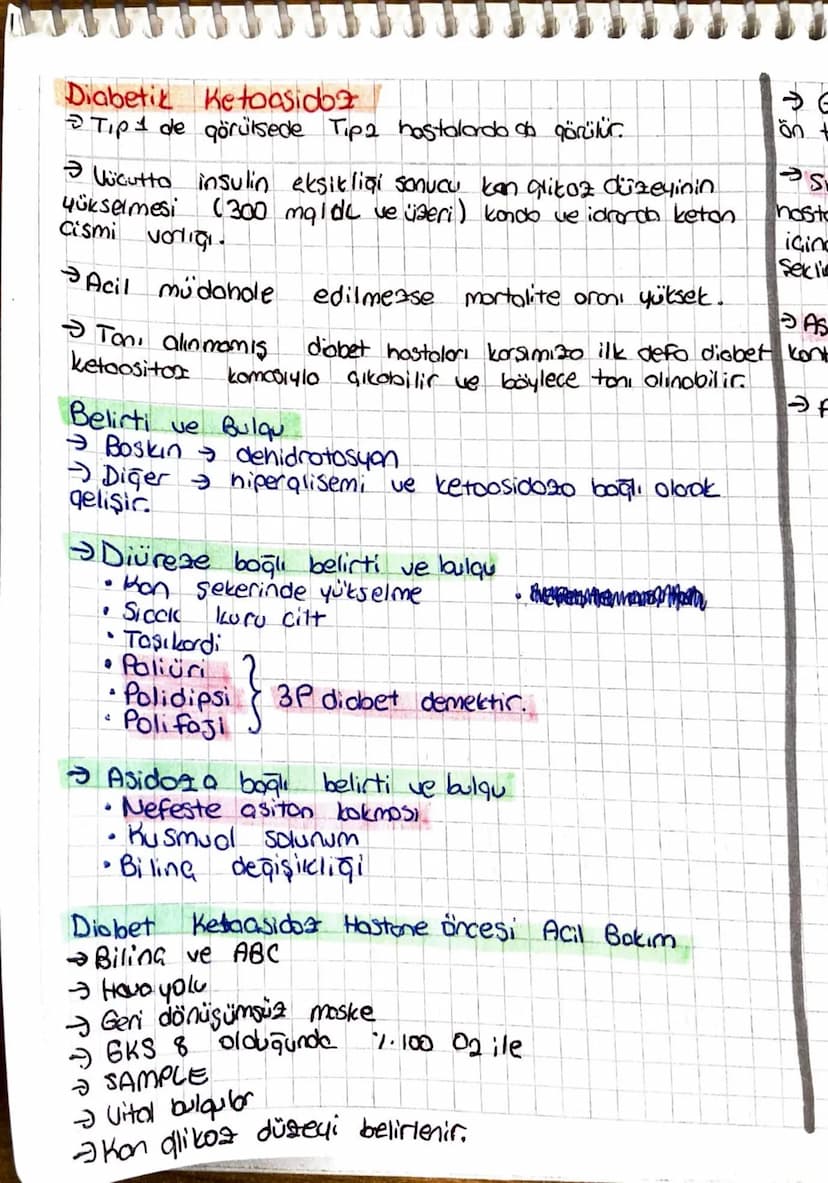 Diabetik Ketoasidoz
→ Tip1 de görülsede Tip2 hastalarda da görülür.
→ Vücutta insulin eksikliği sonucu kan glikoz düzeyinin
yükselmesi (300 mg/dL ve üzeri) kanda ve idrarda keton
cismi varlığı.
→ Acil müdahale edilmezse mortalite oranı yüksek.
→ Tanı alınmamış diabet hastaları karşımıza ilk defa diabet
ketoasitoz komasıyla çıkabilir ve böylece tanı alınabilir.
Belirti ve Bulgu
→ Baskın → dehidratasyon
→ Diğer → hiperglisemi ve ketoasidoza bağlı olarak
gelişir.
→ Diüreze bağlı belirti ve bulgu
• Kan şekerinde yükselme
• Sıcak kuru cilt
• Taşikardi
• Poliüri
• Polidipsi } 3P diabet demektir.
• Polifaji
→ Asidoza bağlı belirti ve bulgu
• Nefeste asiton kokması.
• Kusmual solunum
• Bilinç değişikliği
Diabet Ketoasidoz Hastane öncesi Acil Bakım
→ Bilinç ve ABC
→ Hava yolu
→ Geri dönüşümsüz maske
→ GKS 8 olduğunda %100 O2 ile
→ SAMPLE
→ Vital bulgular
→ Kan glikoz düzeyi belirlenir.
→
ön
→
hasta
için
→ As
→